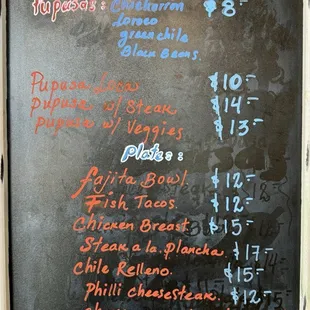 Pupusas: Chicharron $8-
loroco
green chile
Black Beans.
Pupusa Loca $10-
pupusa w/ Steak $14-
pupusa w/ Veggies $13-
Plates:
fajita Bowl $12-
Fish Tacos. $12-
Chicken Breast $15-
Steak a la plancha $17-
Chile Relleno. $15-
Philli cheesesteak. $12-